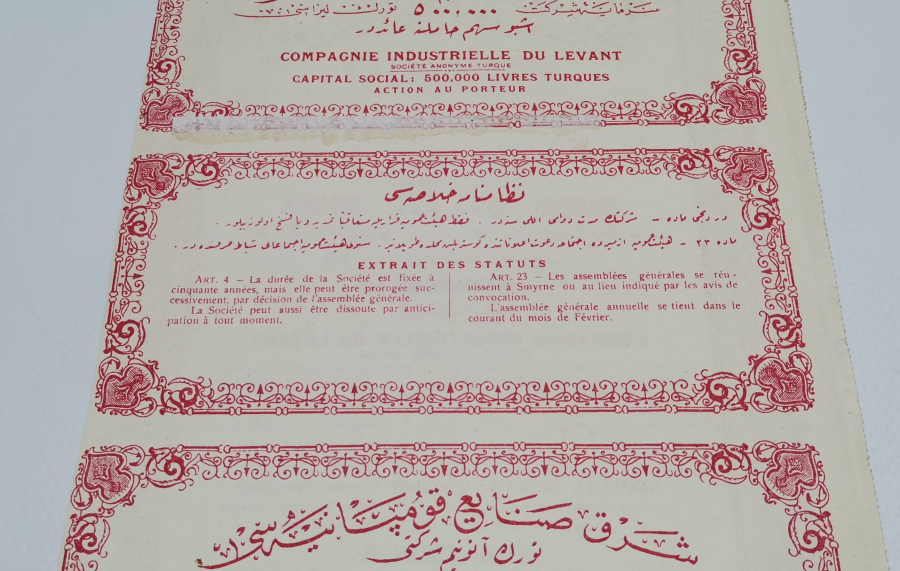 سرمایهٔ شرکت ٥٠٠,٠٠٠ تورك لیراسی
اشبو سهم حاملنه عائددر
COMPAGNIE INDUSTRIELLE DU LEVANT
SOCIÉTÉ ANONYME TURQUE
CAPITAL SOCIAL: 500.000 LIVRES TURQUES
ACTION AU PORTEUR
نظامنامه خلاصه‌سی
دردنجی ماده – شرکتك مدت دوامی اللی سنه‌در . فقط هیئت عمومیه قراریله
ماده ٢٣ – هیئت عمومیه ازمیرده
EXTRAIT DES STATUTS
ART. 4 — La durée de la Société est fixée à
cinquante années, mais elle peut être prorogée suc-
cessivement, par décision de l'assemblée générale.
La Société peut aussi être dissoute par antici-
pation à tout moment.
ART. 23 — Les assemblées générales se réu-
nissent à Smyrne ou au lieu indiqué par les avis de
convocation.
L'assemblée générale annuelle se tient dans le
courant du mois de Février.
شرق صنایع قومپانیه‌سی
تورك آنونیم شرکتی